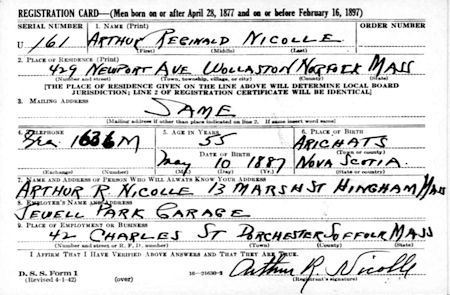 REGISTRATION CARD—(Men born on or after April 28, 1877 and on or before February 16, 1897)
SERIAL NUMBER 1. NAME (Print) ORDER NUMBER
U 161 ARTHUR REGINALD NICOLLE
(First) (Middle) (Last)
2. PLACE OF RESIDENCE (Print)
429 NEWPORT AVE WOLLASTON NORFOLK MASS
(Number and street) (Town, township, village, or city) (County) (State)
[THE PLACE OF RESIDENCE GIVEN ON THE LINE ABOVE WILL DETERMINE LOCAL BOARD
JURISDICTION; LINE 2 OF REGISTRATION CERTIFICATE WILL BE IDENTICAL]
3. MAILING ADDRESS
SAME
[Mailing address if other than place indicated on line 2. If same insert word same]
4. TELEPHONE 5. AGE IN YEARS 6. PLACE OF BIRTH
1636M 55 ARICHATS
DATE OF BIRTH (Town or county)
May 10 1887 NOVA SCOTIA
(Exchange) (Number) (Mo.) (Day) (Yr.) (State or country)
7. NAME AND ADDRESS OF PERSON WHO WILL ALWAYS KNOW YOUR ADDRESS
ARTHUR R. NICOLLE 13 MARSH ST HINGHAM MASS
8. EMPLOYER'S NAME AND ADDRESS
JEWELL PARK GARAGE
9. PLACE OF EMPLOYMENT OR BUSINESS
42 CHARLES ST DORCHESTER SUFFOLK MASS
(Number and street or R. F. D. number) (Town) (County) (State)
I AFFIRM THAT I HAVE VERIFIED ABOVE ANSWERS AND THAT THEY ARE TRUE.
D. S. S. Form 1
(Revised 4-1-42) (over) 16—21630-2 Arthur R. Nicolle
(Registrant's signature)